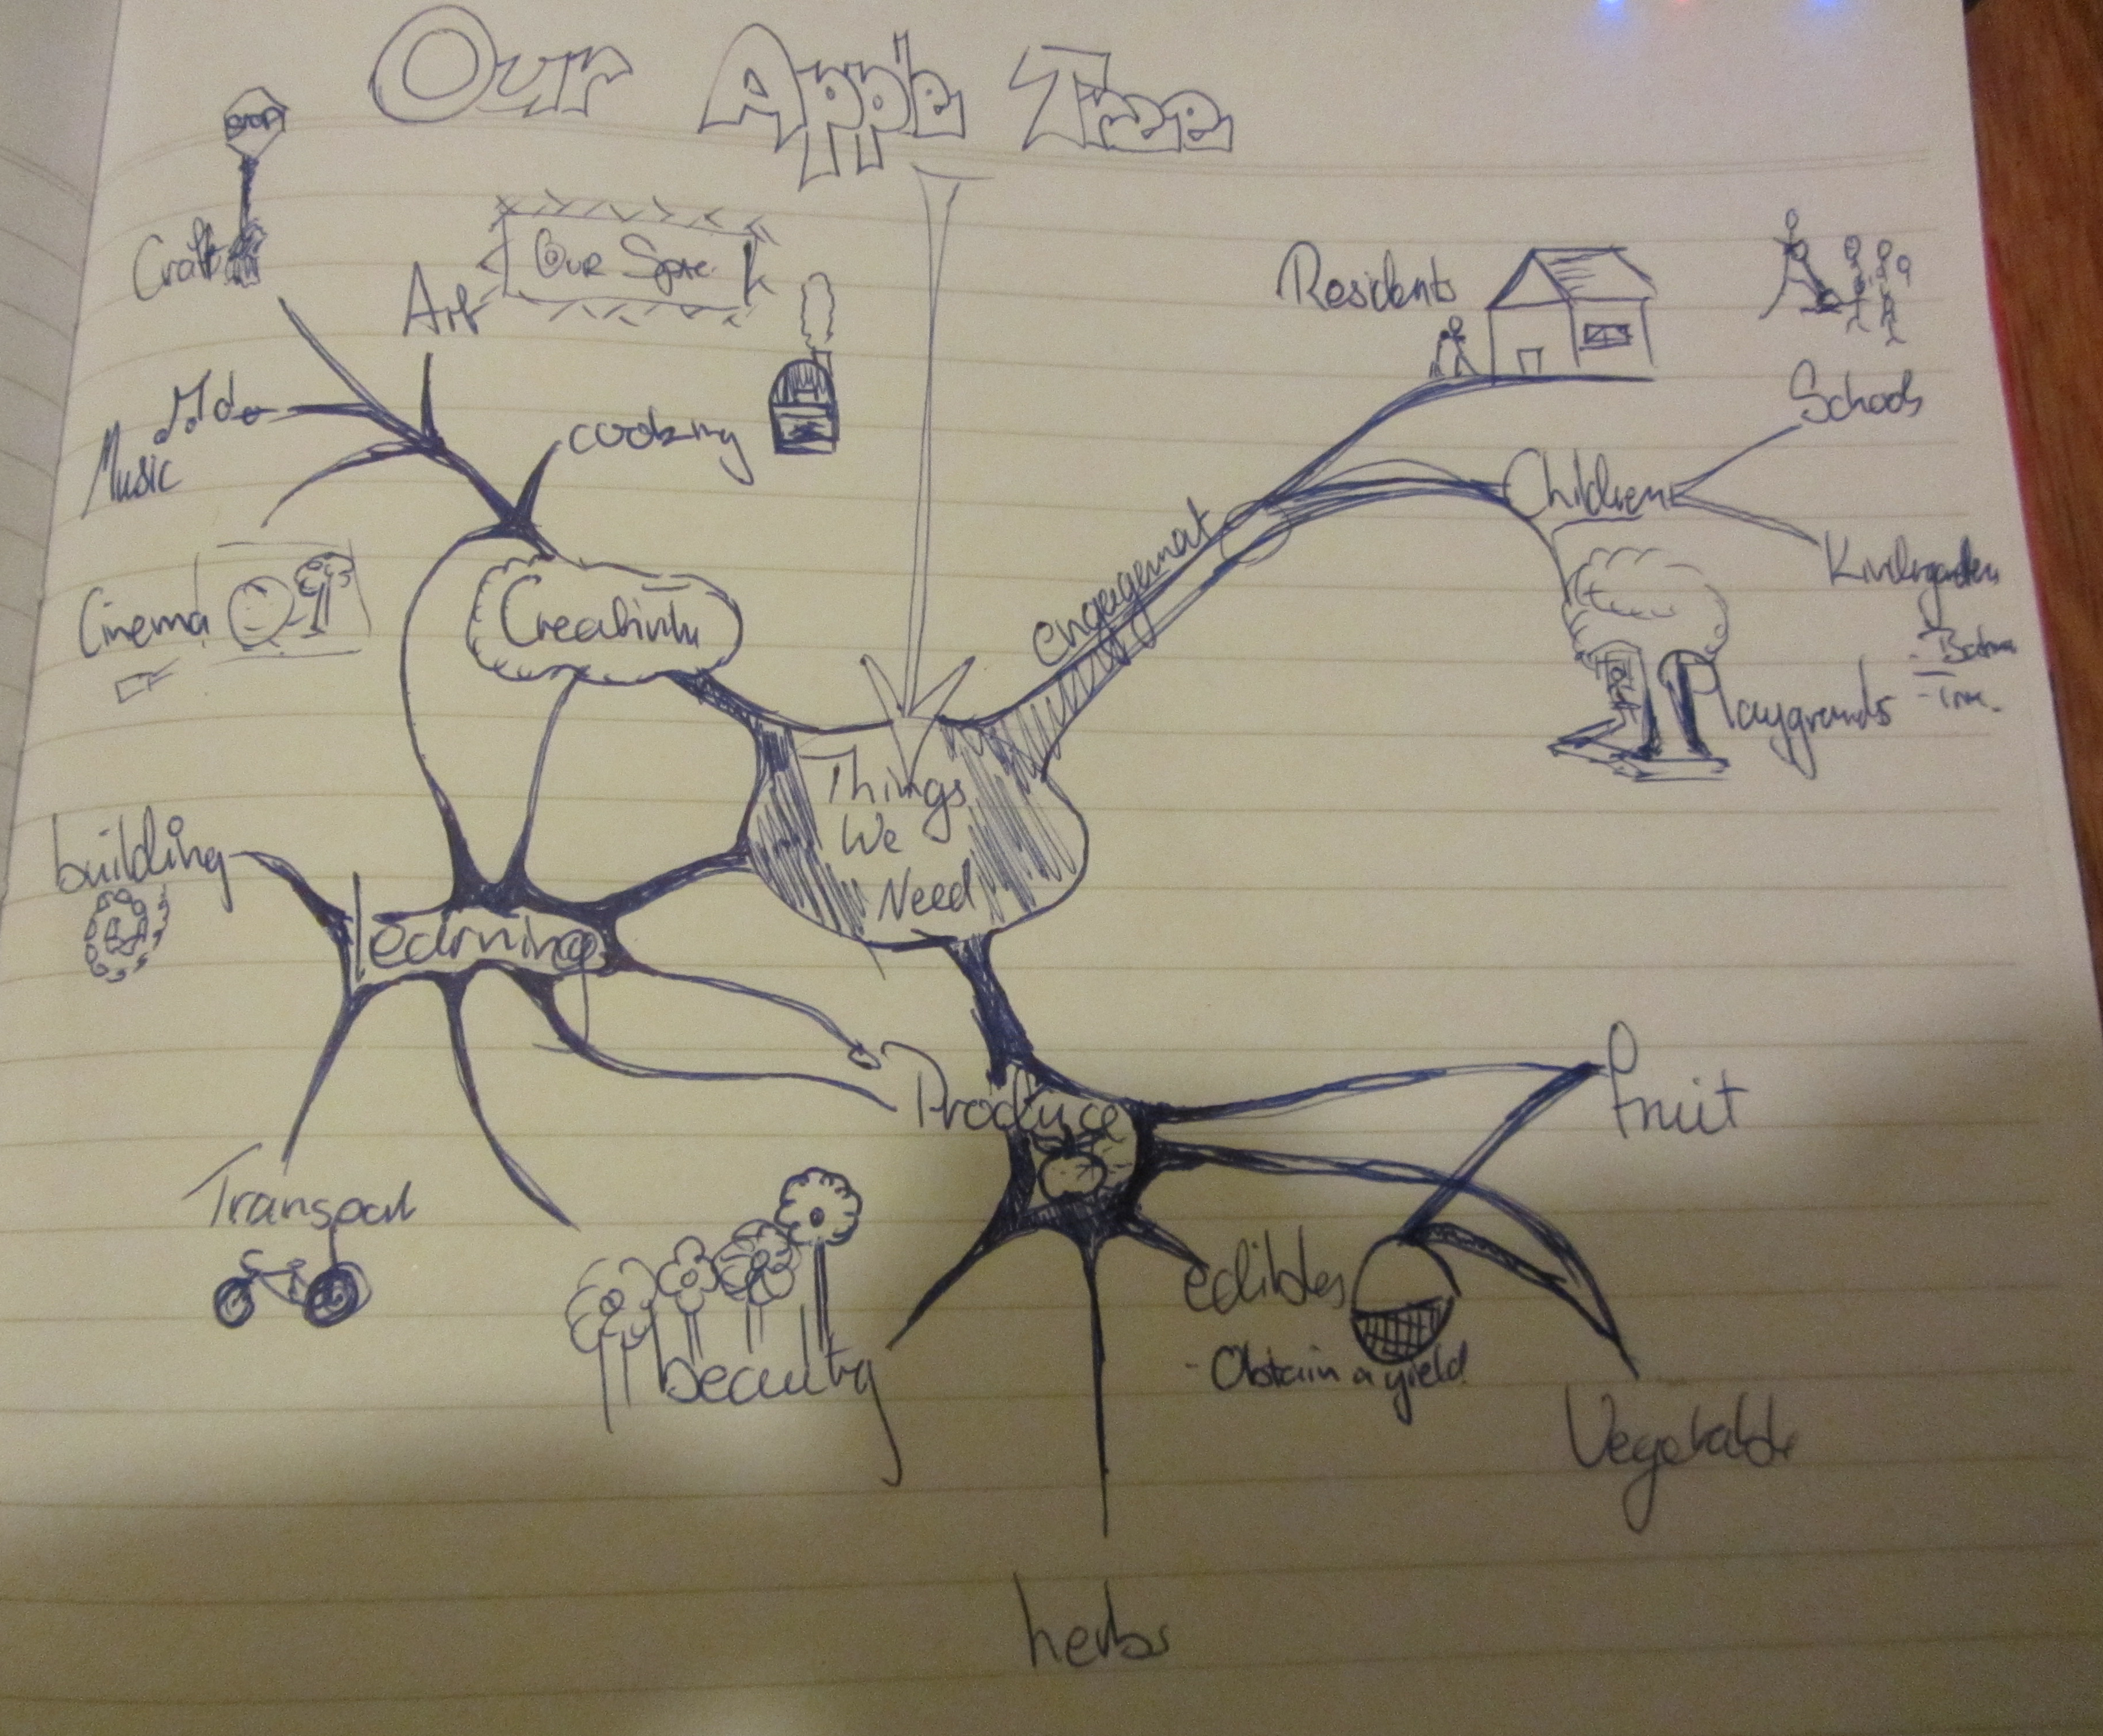 Our Apple Tree
STOP
Craft
Art
Our Space
Residents
Schools
Music
cooking
Children
Kindergarten
engagement
Cinema
Creativity
Playgrounds
Things
We
Need
building
learning
Produce
fruit
Transport
edibles
- Obtain a yield
beauty
Vegetable
herbs